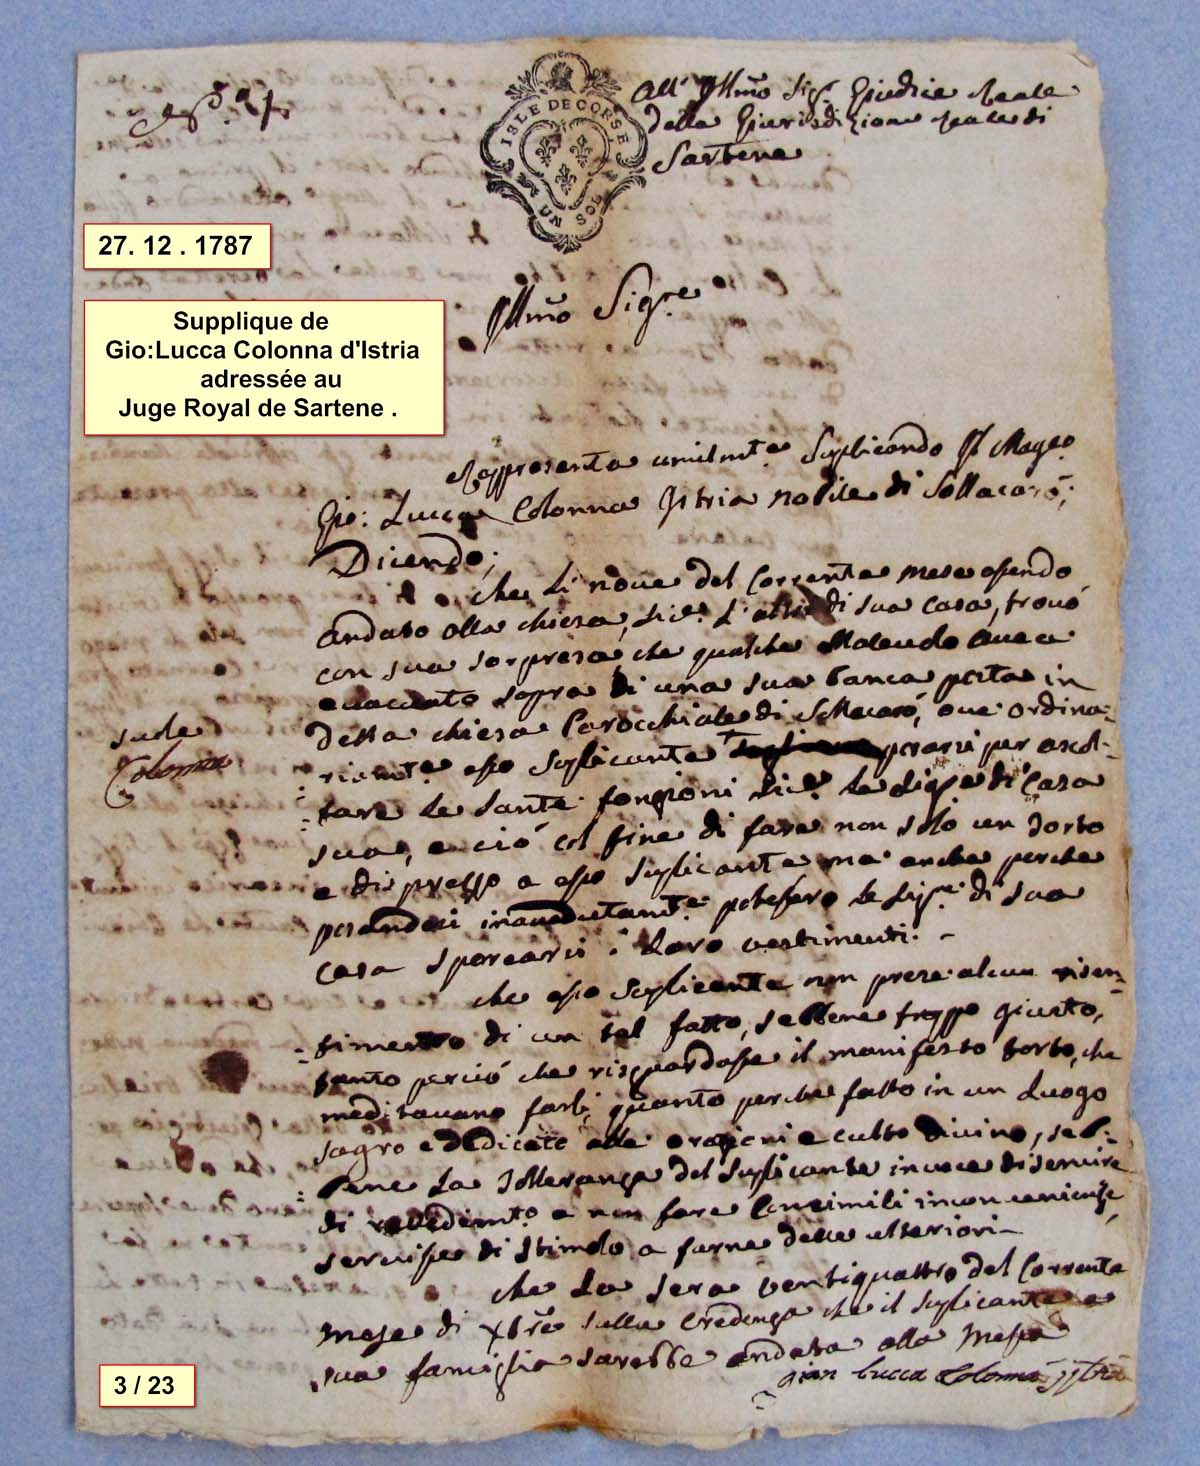 All' Illmo Sigr Giudice Reale
della Giurisdizione Reale di
Sartene
ISLE DE CORSE
UN SOL
27. 12 . 1787
Supplique de
Gio:Lucca Colonna d'Istria
adressée au
Juge Royal de Sartene .
Illmo Sigre
Rappresenta umilmte Suplicando Il Magco
Gio: Lucca Colonna Istria nobile di Sollacaró;
Dicendo;
che li nove del Corrente mese essendo
andato alla chiesa, di sua casa, trovó
con sua sorpresa che qualche Malevolo avea
evacuato sopra di una sua banca posta in
detta chiesa Parocchiale di Sollacaró, ove ordina=
riamte esso Suplicante porarsi per ascol-
tare le sante fonzioni di Casa
sua, e ció col fine di fare non solo un torto
e disprezzo a esso Suplicante ma anche perche
ponendosi inavedutamte potessero le Sigre di sua
casa sporcarsi i Loro vestimenti. -
che esso Suplicante non prese alcun risen=
timento di un tal fatto, sebbene troppo giusto,
tanto perció che risguardasse il manifesto torto, che
meditavano farli, quanto perche fatto in un Luogo
sagro e dedicato alle orazioni e culto divino, seb=
bene La Tolleranza del Suplicante invece di servire
di e non fare Consimili inconvenienze,
servisse di Stimolo a farne delle ulteriori -
che La sera ventiquattro del Corrente
mese di Xbre sulla Credenza che il suplicante e
sua famiglia sarebbe andata alla Messa
gian Lucca Colonna istria
Colonna
3 / 23